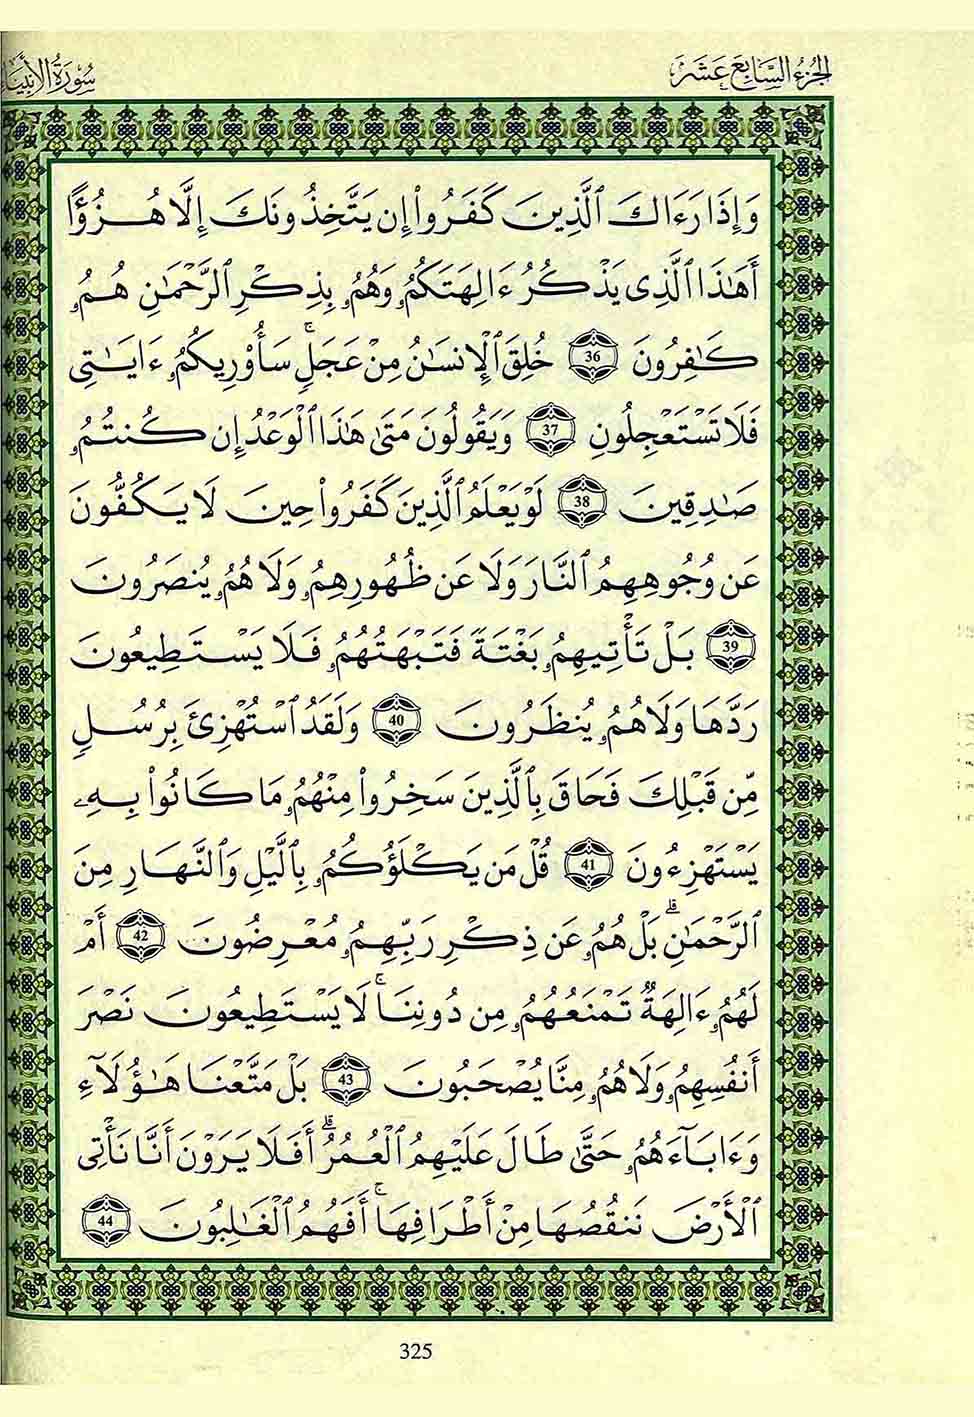 الجُزْءُ السَّابِعَ عَشَرَ
سُورَةُ الأَنْبِيَاء
وَإِذَا رَءَاكَ ٱلَّذِينَ كَفَرُواْ إِن يَتَّخِذُونَكَ إِلَّا هُزُؤًا
أَهَٰذَا ٱلَّذِى يَذْكُرُ ءَالِهَتَكُمُۥ وَهُمُۥ بِذِكْرِ ٱلرَّحْمَٰنِ هُمُۥ
كَٰفِرُونَ 36 خُلِقَ ٱلْإِنسَٰنُ مِنْ عَجَلٍۚ سَأُوْرِيكُمُۥ ءَايَٰتِى
فَلَا تَسْتَعْجِلُونِ 37 وَيَقُولُونَ مَتَىٰ هَٰذَا ٱلْوَعْدُ إِن كُنتُمُۥ
صَٰدِقِينَ 38 لَوْ يَعْلَمُ ٱلَّذِينَ كَفَرُواْ حِينَ لَا يَكُفُّونَ
عَن وُجُوهِهِمُ ٱلنَّارَ وَلَا عَن ظُهُورِهِمُۥ وَلَا هُمُۥ يُنصَرُونَ
39 بَلْ تَأْتِيهِمُۥ بَغْتَةً فَتَبْهَتُهُمُۥ فَلَا يَسْتَطِيعُونَ
رَدَّهَا وَلَا هُمُۥ يُنظَرُونَ 40 وَلَقَدُ ٱسْتُهْزِئَ بِرُسُلٍ
مِّن قَبْلِكَ فَحَاقَ بِٱلَّذِينَ سَخِرُواْ مِنْهُمُۥ مَا كَانُواْ بِهِۦ
يَسْتَهْزِءُونَ 41 قُلْ مَن يَكْلَؤُكُمُۥ بِٱلَّيْلِ وَٱلنَّهَارِ مِنَ
ٱلرَّحْمَٰنِۗ بَلْ هُمُۥ عَن ذِكْرِ رَبِّهِمُۥ مُعْرِضُونَ 42 أَمْ
لَهُمُۥ ءَالِهَةٌ تَمْنَعُهُمُۥ مِن دُونِنَاۚ لَا يَسْتَطِيعُونَ نَصْرَ
أَنفُسِهِمُۥ وَلَا هُمُۥ مِنَّا يُصْحَبُونَ 43 بَلْ مَتَّعْنَا هَٰؤُلَآءِ
وَءَابَآءَهُمُۥ حَتَّىٰ طَالَ عَلَيْهِمُ ٱلْعُمُرُۗ أَفَلَا يَرَوْنَ أَنَّا نَأْتِى
ٱلْأَرْضَ نَنقُصُهَا مِنْ أَطْرَافِهَاۚ أَفَهُمُ ٱلْغَٰلِبُونَ 44
325